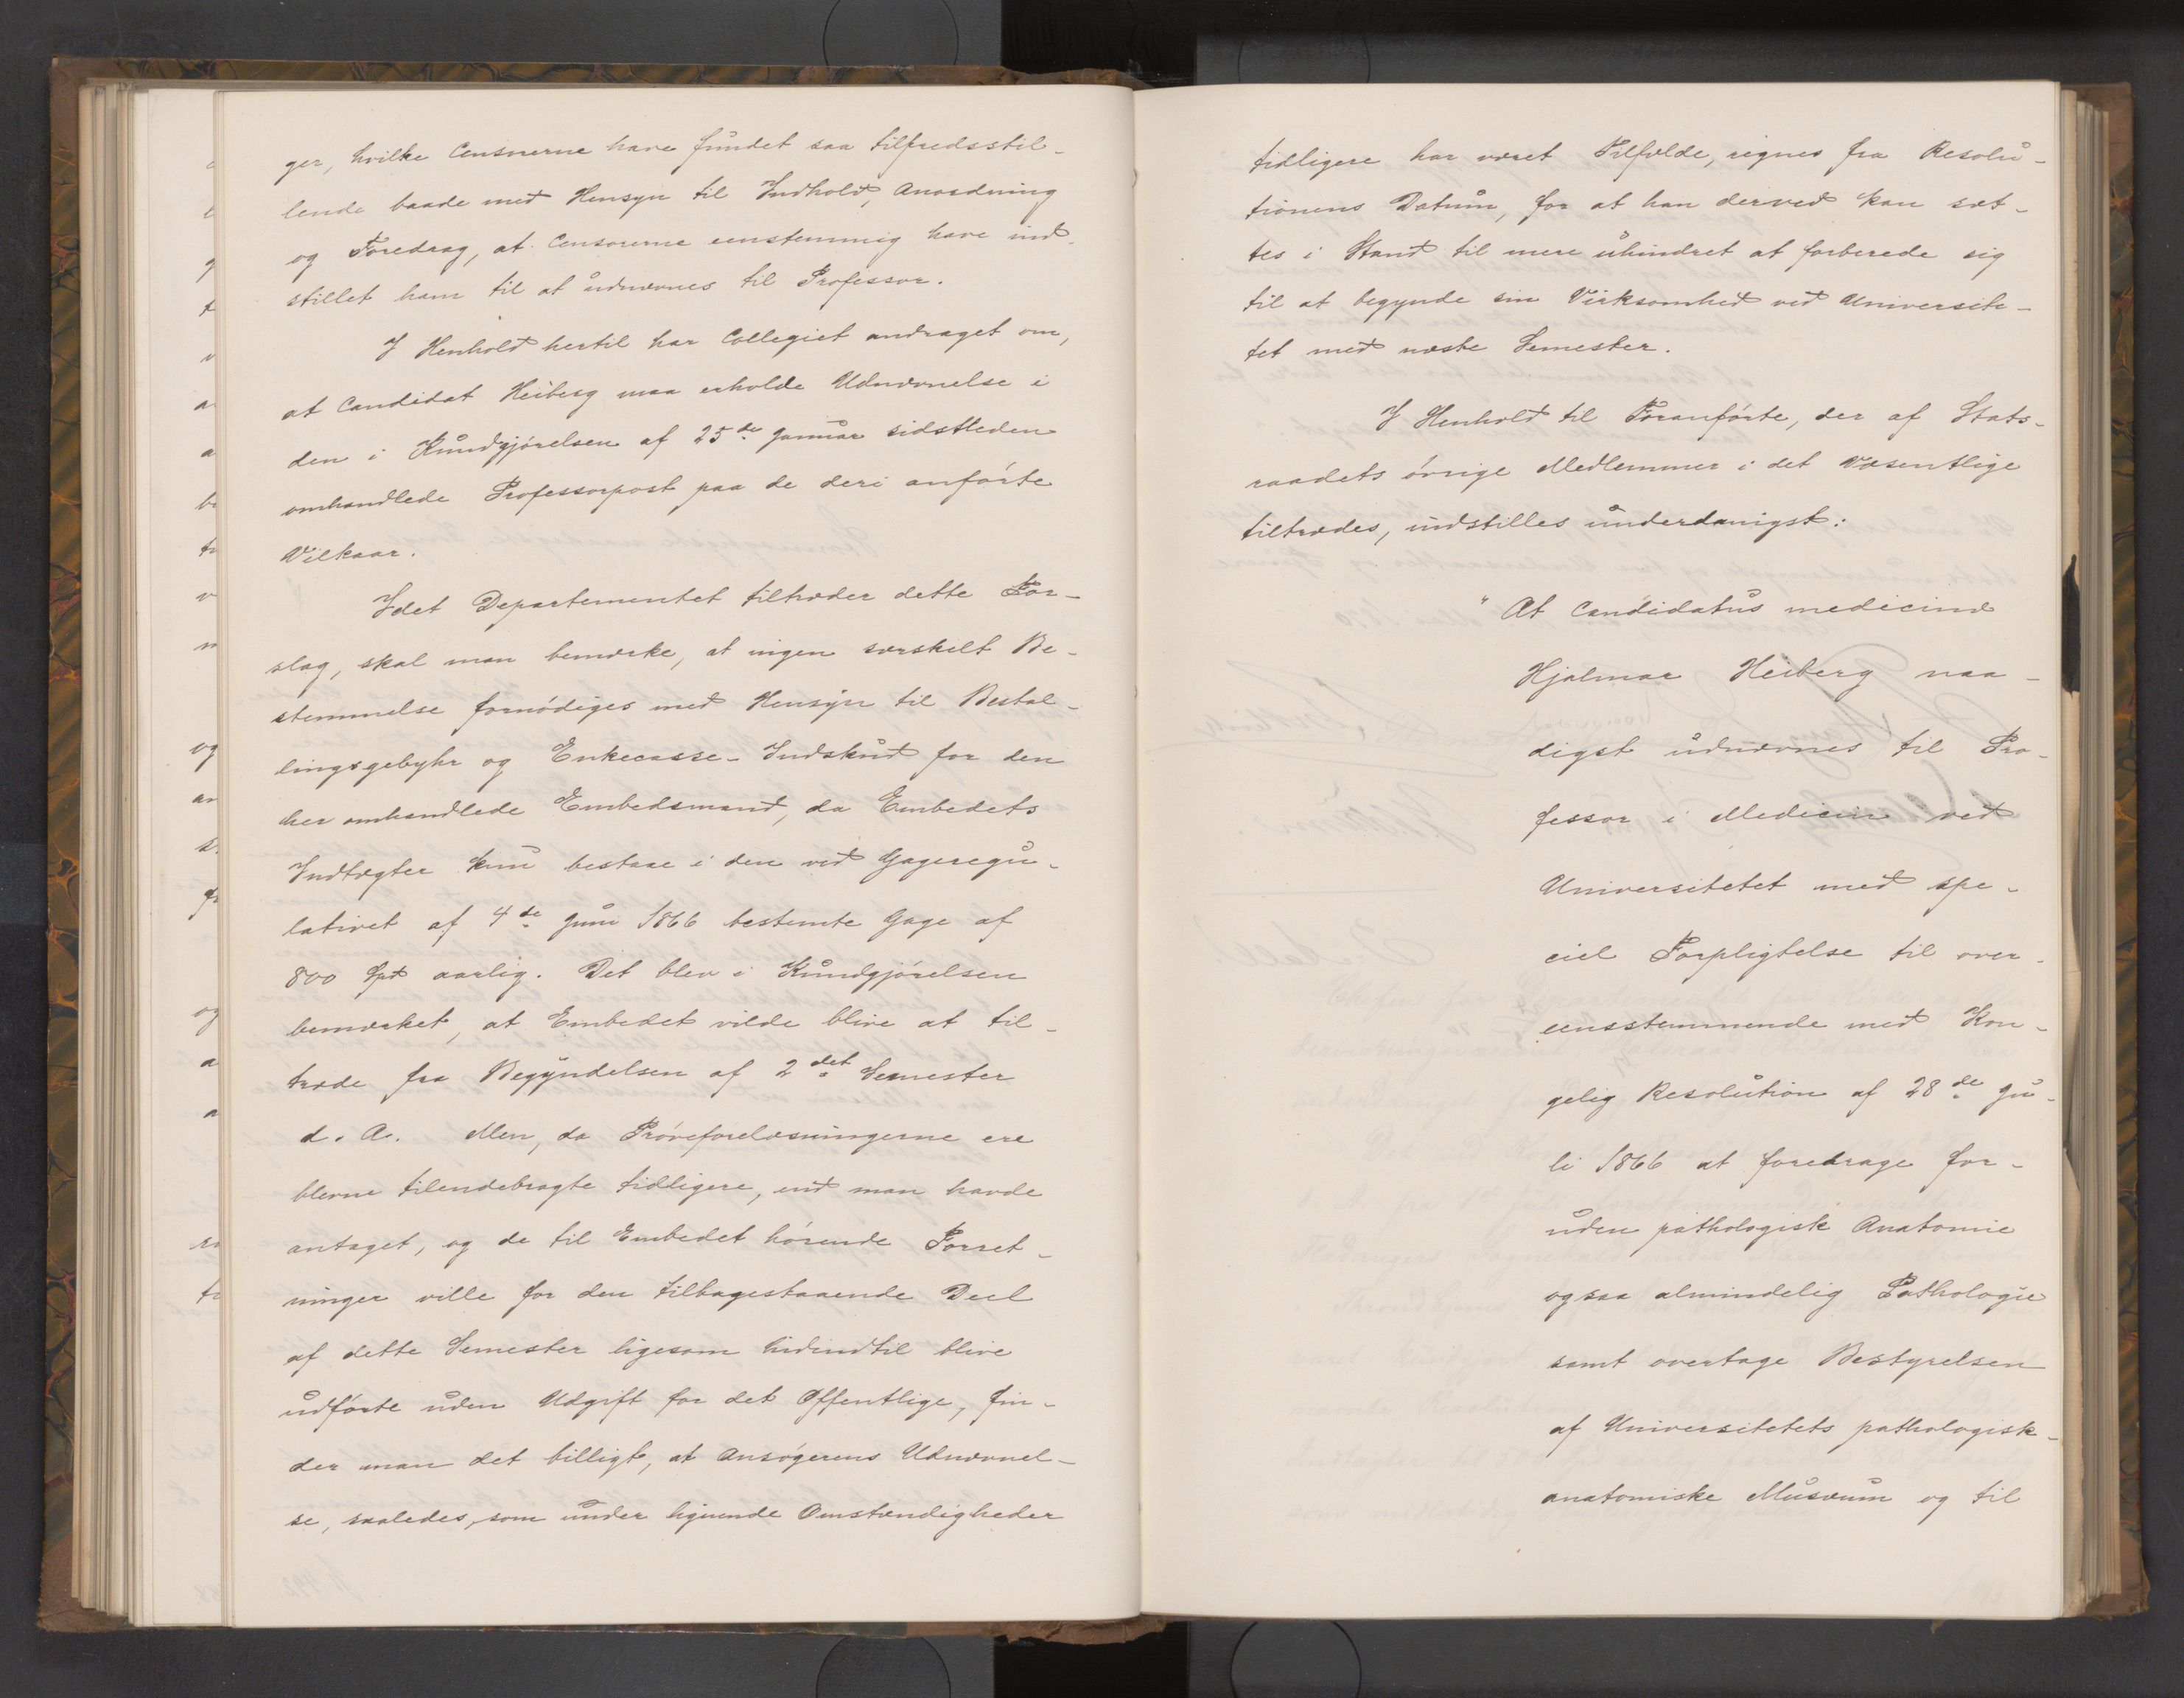 ger, hvilke Censorerne have fundet saa tilfredsstil-
lende baade med Hensyn til Indhold, Anordning
og Foredrag, at Censorerne eenstemmig have ind-
stillet ham til at udnævnes til Professor.
I Henhold hertil har Collegiet andraget om,
at Candidat Heiberg maa erholde Udnævnelse i
den i Kundgjørelsen af 25de Januar sidstleden
omhandlede Professorpost paa de deri anførte
Vilkaar.
Idet Departementet tiltræder dette For-
slag, skal man bemærke, at ingen særskilt Be-
stemmelse fornødiges med Hensyn til Bestal-
lingsgebyhr og Enkecasse-Indskud for den
her omhandlede Embedsmand, da Embedets
Indtægter kun bestaae i den ved Gageregu-
lativet af 4de Juni 1866 bestemte Gage af
800 Spd aarlig. Det blev i Kundgjørelsen
bemærket, at Embedet vilde blive at til-
træde fra Begyndelsen af 2det Semester
d. A. Men, da Prøveforelæsningerne ere
blevne tilendebragte tidligere, end man havde
antaget, og de til Embedet hørende Forret-
ninger ville for den tilbagestaaende Deel
af dette Semester ligesom hidindtil blive
udførte uden Udgift for det Offentlige, fin-
der man det billigt, at Ansøgerens Udnævnel-
se, saaledes, som under lignende Omstændigheder
tidligere har været Tilfælde, regnes fra Resolu-
tionens Datum, for at han derved kan sæt-
tes i Stand til mere uhindret at forberede sig
til at begynde sin Virksomhed ved Universite-
tet med næste Semester.
I Henhold til Foranførte, der af Stats-
raadets øvrige Medlemmer i det Væsentlige
tiltrædes, indstilles underdanigst:
"At Candidatus medicinæ
Hjalmar Heiberg naa-
digst udnævnes til Pro-
fessor i Medicin ved
Universitetet med spe-
ciel Forpligtelse til over-
eensstemmende med Kon-
gelig Resolution af 28de Ju-
li 1866 at foredrage for-
uden pathologisk Anatomie
ogsaa almindelig Pathologie
samt overtage Bestyrelsen
af Universitetets pathologisk-
anatomiske Musæum og til